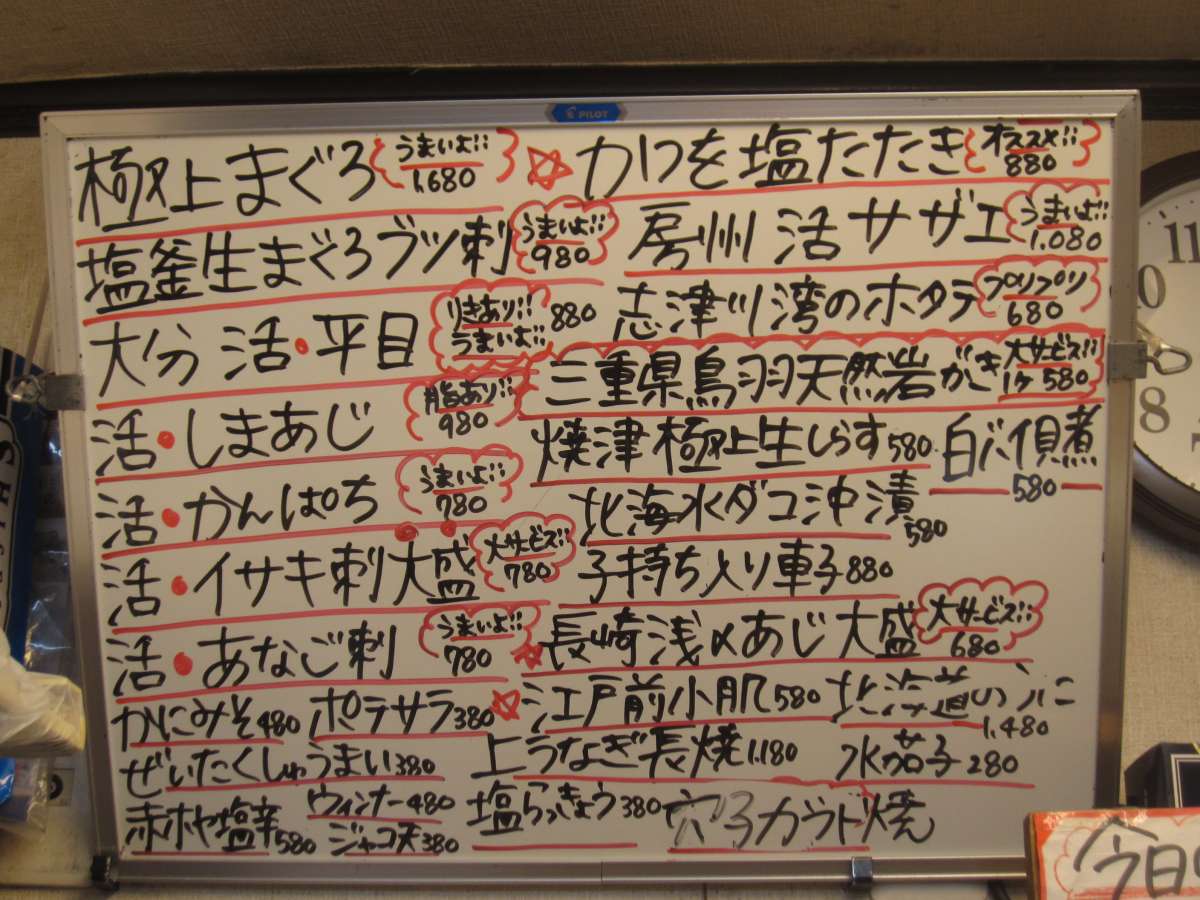 PILOT
極上まぐろ うまいよ!! 1,680
塩釜生まぐろブツ刺 うまいよ!! 980
大分 活・平目 りきあり!! うまいよ!! 880
活・しまあじ 脂あり!! 980
活・かんぱち うまいよ!! 780
活・イサキ刺大盛 大サービス!! 780
活・あなご刺 うまいよ!! 780
かにみそ480 ポテサラ380
ぜいたくしゅうまい380
赤ホヤ塩辛580 ウィンナー480
ジャコ天380
☆かつを塩たたき オススメ!! 880
房州 活サザエ うまいよ!! 1.080
志津川湾のホタテ プリプリ 680
三重県鳥羽天然岩がき 大サービス!! 1ヶ 580
焼津極上生しらす580
白バイ貝煮 580
北海水ダコ沖漬 580
子持ち入り車子880
★長崎浅〆あじ大盛 大サービス!! 680
☆江戸前小肌580
北海道 1,480
上うなぎ長焼1.180 水茄子280
塩らっきょう380
焼
今日
11
10
8